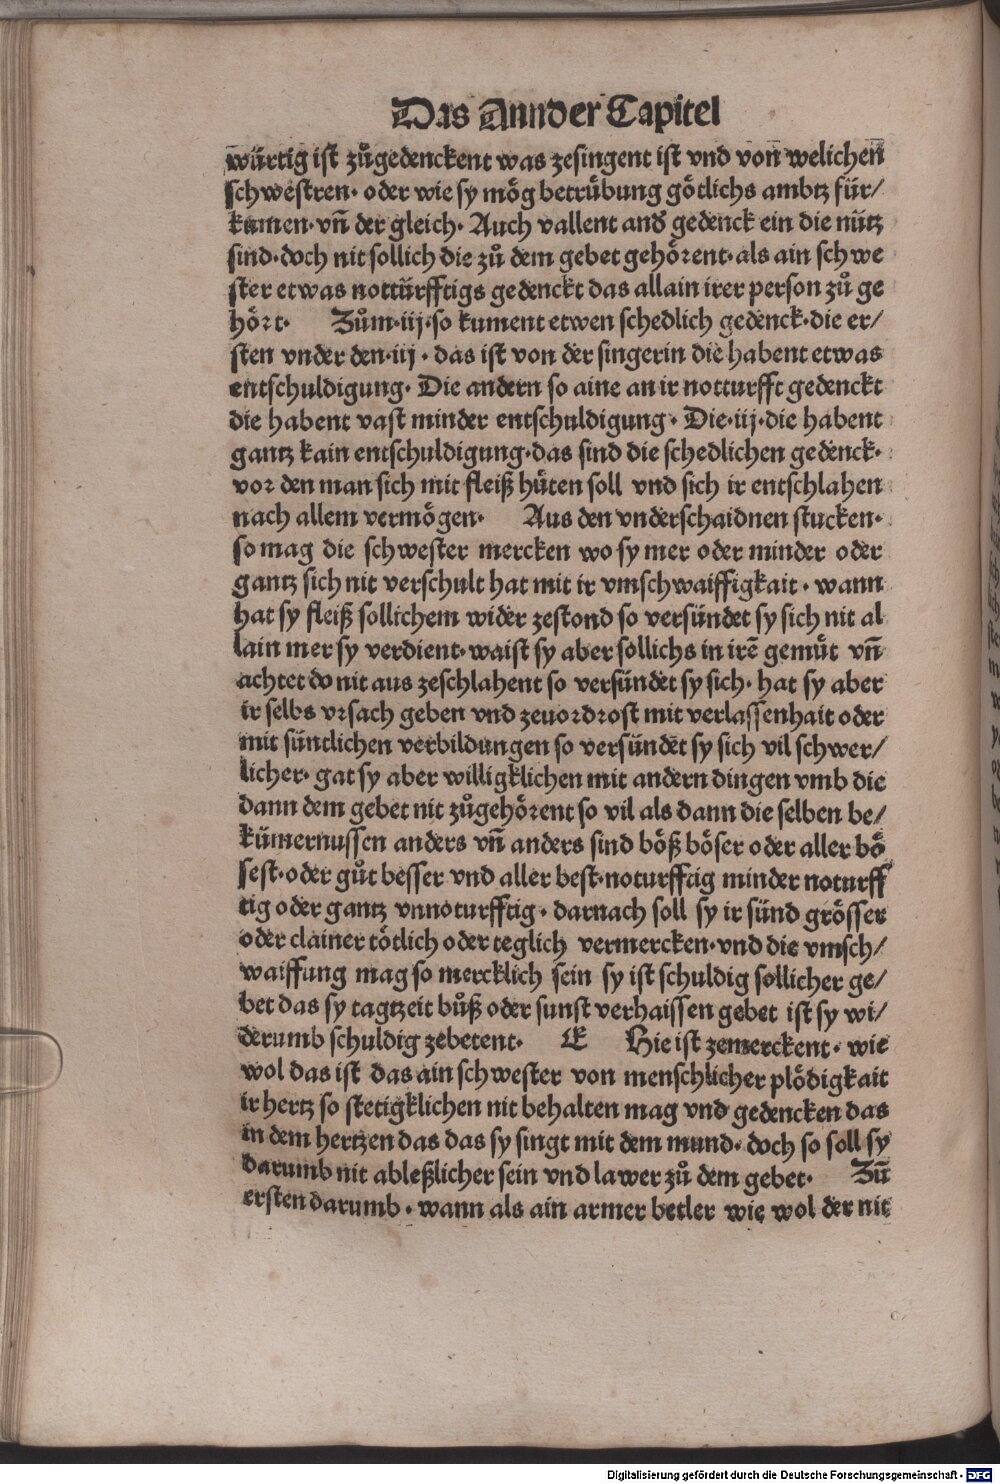 Das Annder Capitel
würtig ist zůgedenckent was zesingent ist vnd von welichen
schwestren· oder wie sy mög betrübung götlichs ambtz für/
kumen· vñ der gleich· Auch vallent and̕ gedenck ein die nütz
sind· doch nit sollich die zů dem gebet gehörent· als ain schwe
ster etwas notturfftigs gedenckt das allain irer person zů ge
hört· Zům·iij·so kument etwen schedlich gedenck·die er/
sten vnder den·iij· das ist von der singerin die habent etwas
entschuldigung· Die andern so aine an ir notturfft gedenckt
die habent vast minder entschuldigung· Die·iij·die habent
gantz kain entschuldigung·das sind die schedlichen gedenck·
vor den man sich mit fleiß hüten soll vnd sich ir entschlahen
nach allem vermögen· Aus den vnderschaidnen stucken·
so mag die schwester mercken wo sy mer oder minder oder
gantz sich nit verschult hat mit ir vmschwaiffigkait· wann
hat sy fleiß sollichem wider zestond so versündet sy sich nit al
lain mer sy verdient· waist sy aber sollichs in irē gemüt vñ
achtet do nit aus zeschlahent so versündet sy sich· hat sy aber
ir selbs vrsach geben vnd zeuordrost mit verlassenhait oder
mit süntlichen verbildungen so versündet sy sich vil schwer/
licher· gat sy aber willigklichen mit andern dingen vmb die
dann dem gebet nit zůgehörent so vil als dann die selben be/
kümernussen anders vñ anders sind böß böser oder aller bö
sest·oder gůt besser vnd aller best·noturfftig minder noturff
tig oder gantz vnnoturfftig· darnach soll sy ir sünd grösser
oder clainer tötlich oder teglich vermercken·vnd die vmsch/
waiffung mag so mercklich sein sy ist schuldig sollicher ge/
bet das sy tagtzeit bůß oder sunst verhaissen gebet ist sy wi/
derumb schuldig zebetent· Hie ist zemerckent· wie
wol das ist das ain schwester von menschlicher plödigkait
ir hertz so stetigklichen nit behalten mag vnd gedencken das
in dem hertzen das das sy singt mit dem mund· doch so soll sy
darumb nit ableßlicher sein vnd lawer zů dem gebet· Zů
ersten darumb· wann als ain armer betler wie wol der nit
Digitalisierung gefördert durch die Deutsche Forschungsgemeinschaft - DFG